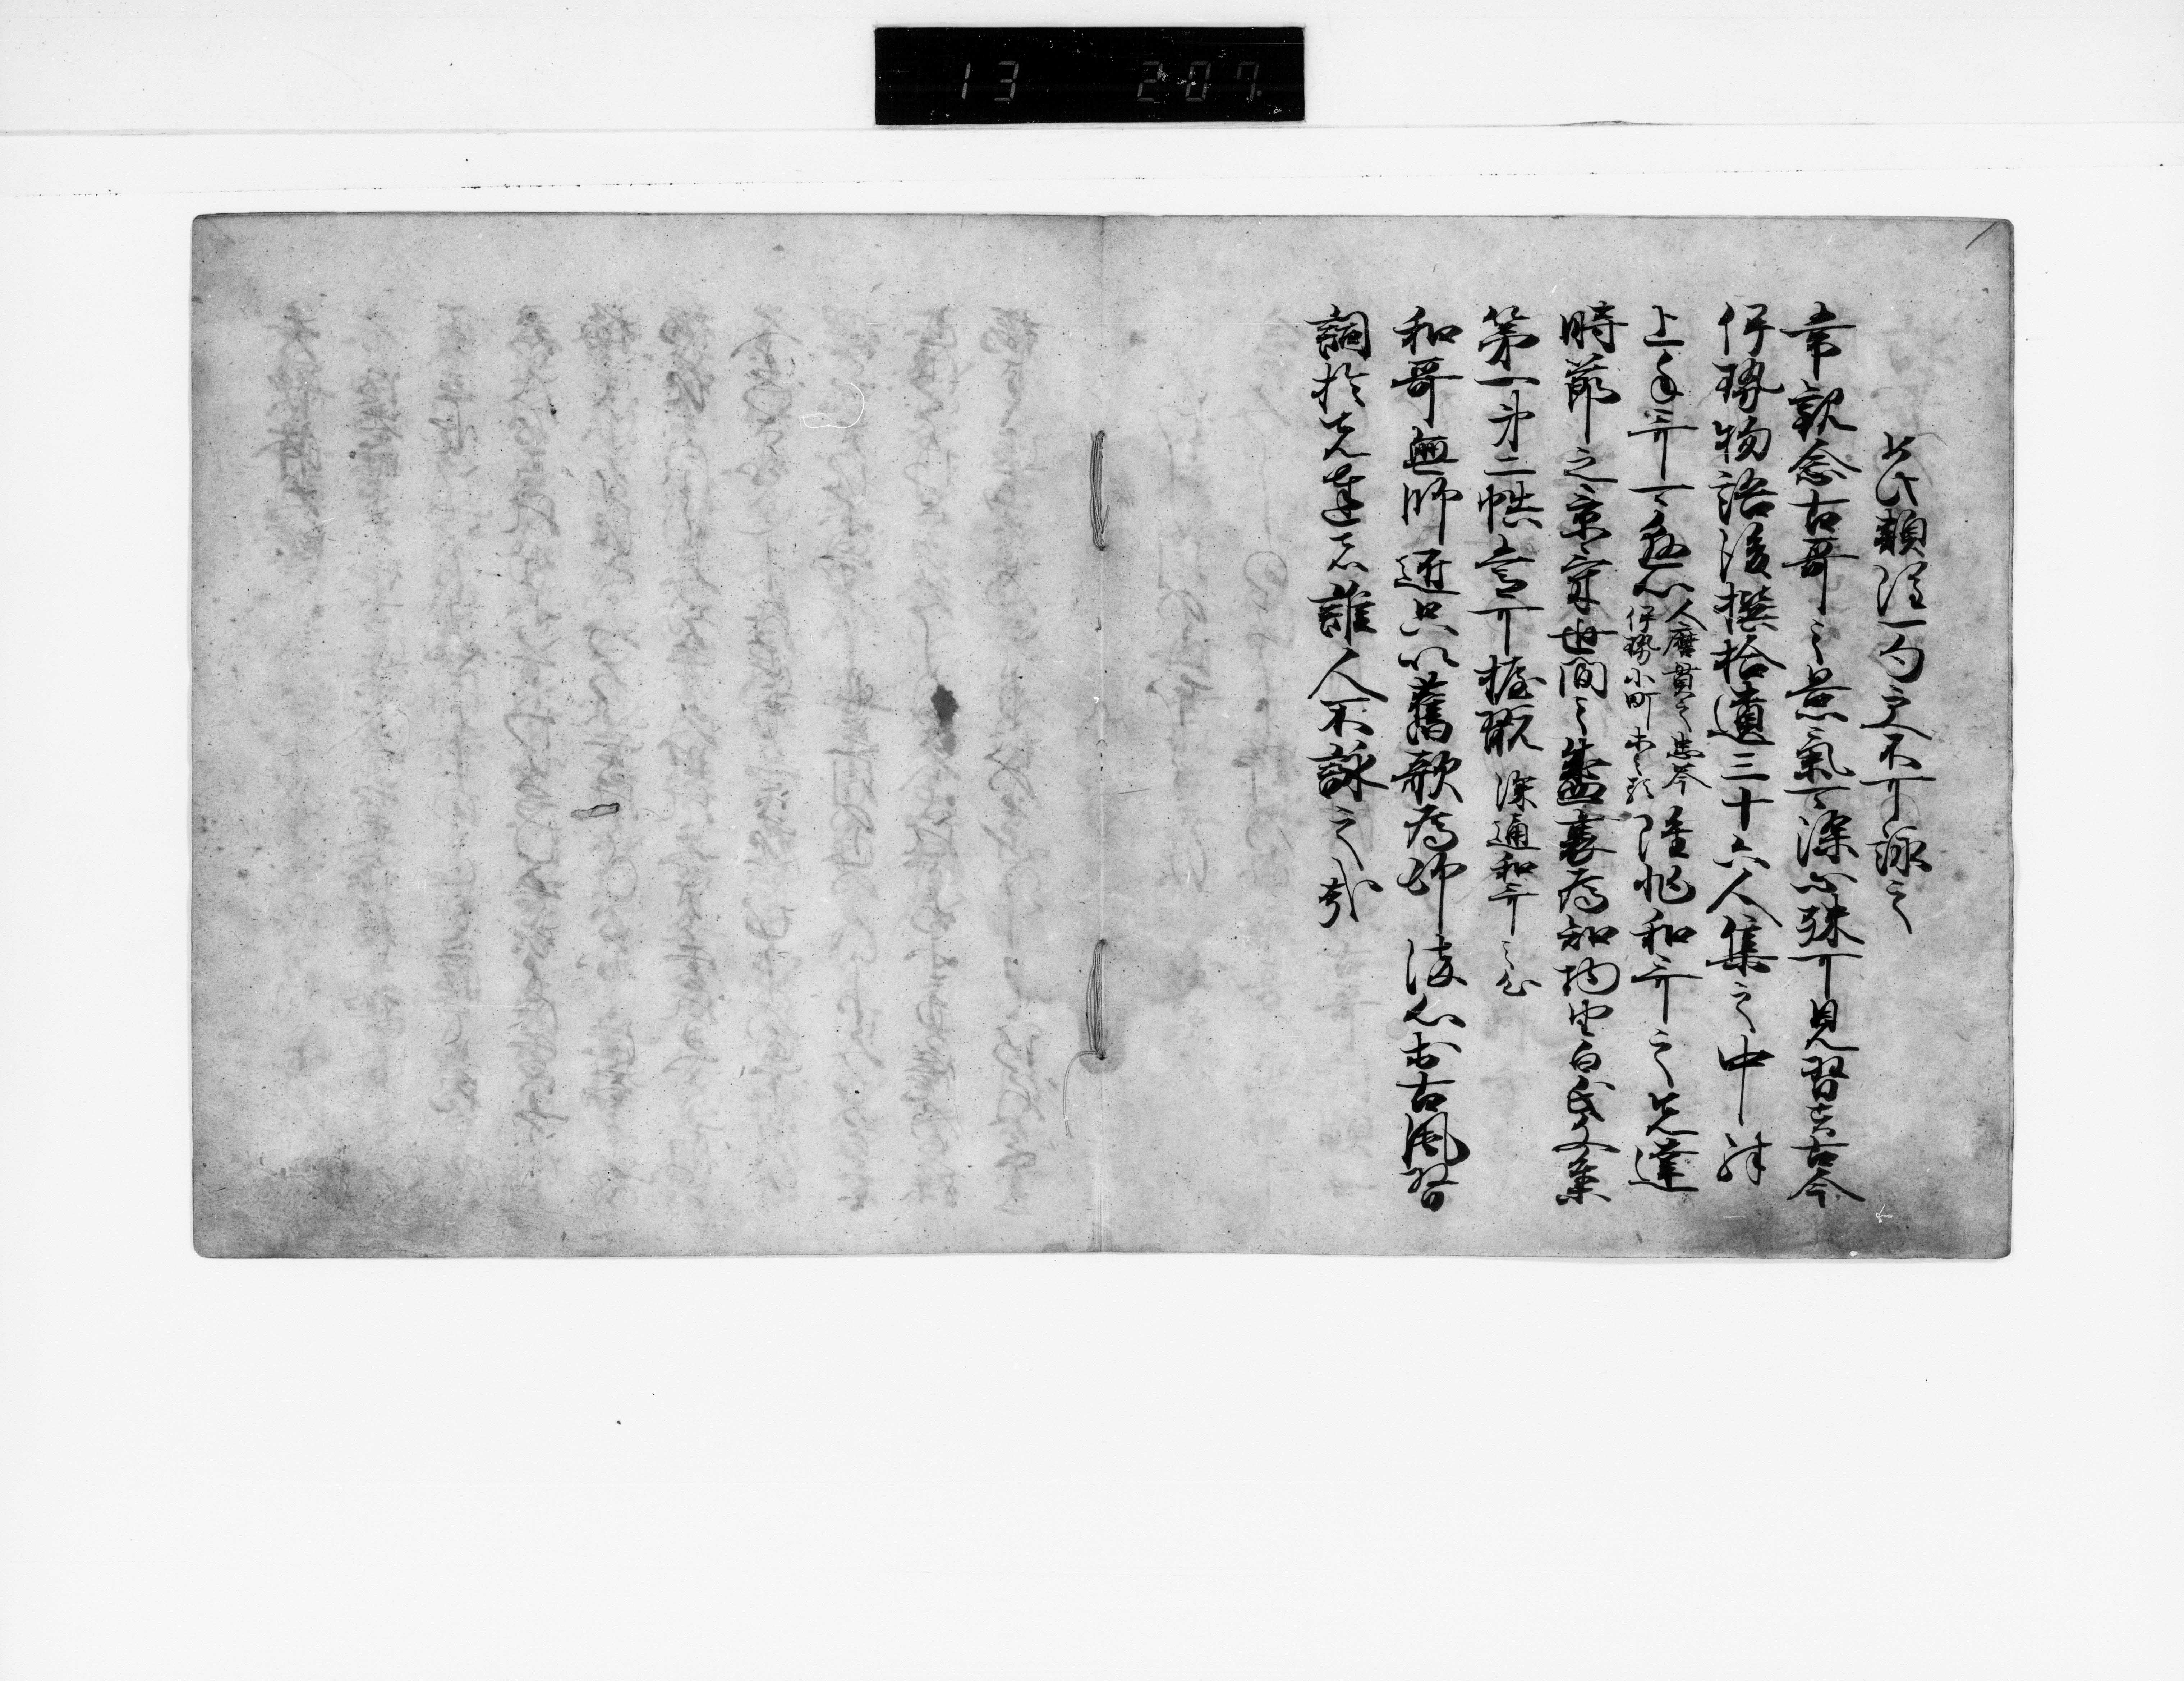 13 207
如此類雖一句更不可詠之
常観念古哥之景氣可染心殊可見習者古今
伊勢物語後撰拾遺三十六人集之中殊
上手哥可懸心
人麿貫之忠岑
伊勢小町等之類
雖非和哥之先達
時節之景氣世間之盛衰為知物由白氏文集
第一第二帙常可握翫
深通和哥之心
和哥無師匠只以舊歌為師染心於古風習
詞於先達者誰人不詠之哉